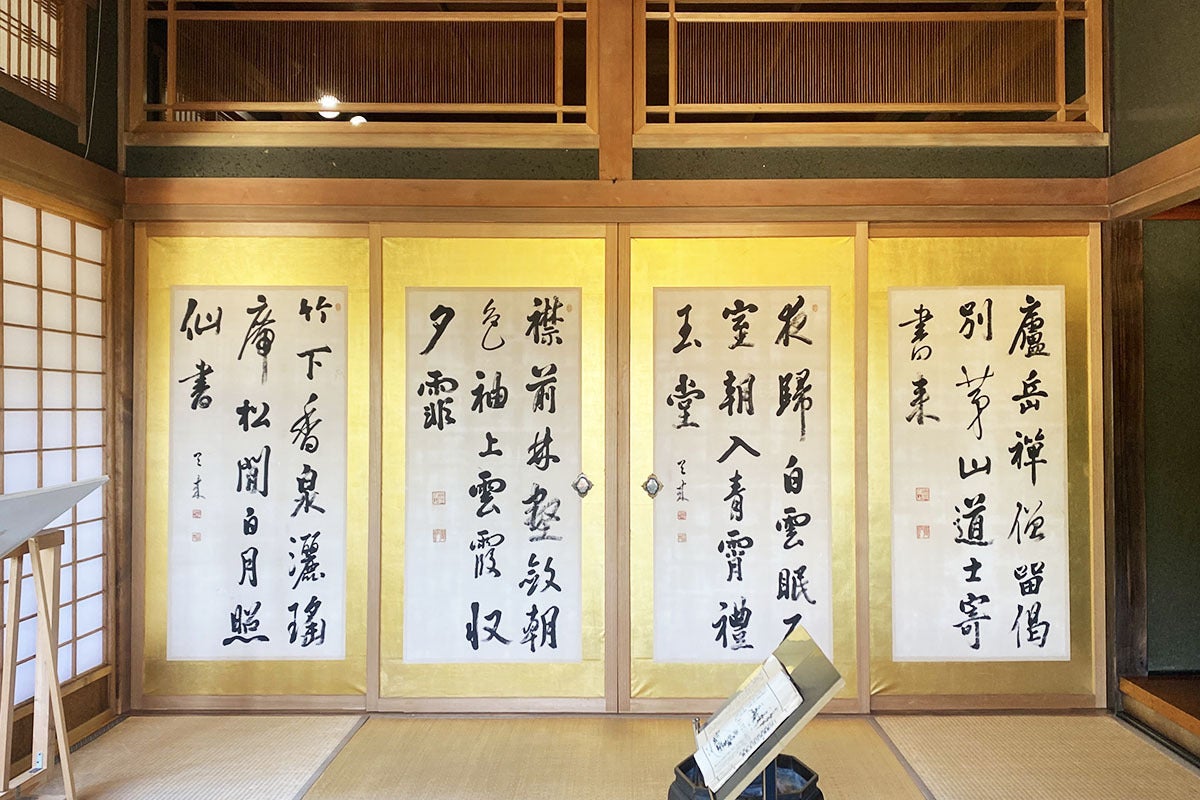 廬岳禅僧留偈
別茅山道士寄
書来
夜歸白雲眠
室朝入青霄禮
玉堂
襟前林壑斂朝
色袖上雲霞収
夕霏
竹下香泉灑瑤
庵松間白月照
仙書